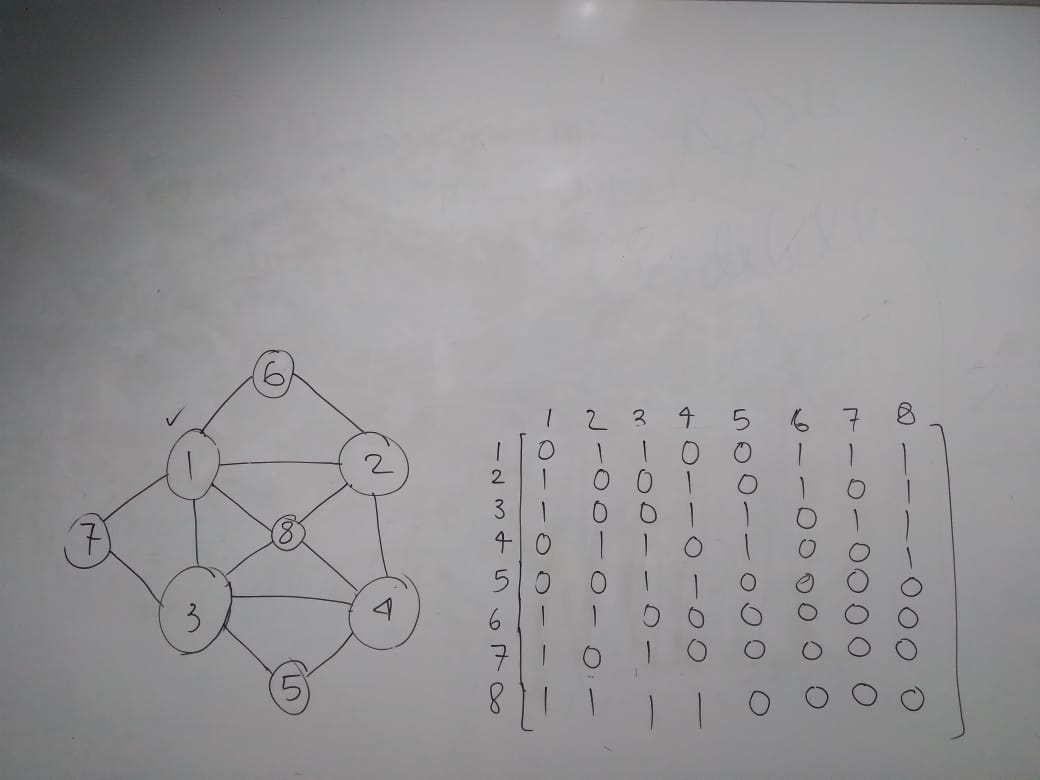 6
✓
1 2
8
7
3 4
5
1 2 3 4 5 6 7 8
1 0 1 1 0 0 1 1 1
2 1 0 0 1 0 1 0 1
3 1 0 0 1 1 0 1 1
4 0 1 1 0 1 0 0 1
5 0 0 1 1 0 0 0 0
6 1 1 0 0 0 0 0 0
7 1 0 1 0 0 0 0 0
8 1 1 1 1 0 0 0 0